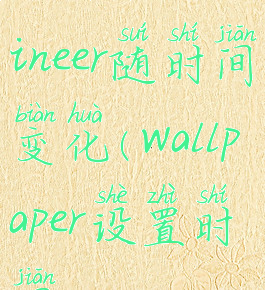 suí shí jiān
ineer随时间
biàn huà
变化(wallp
shè zhì shí
aper设置时
jiān